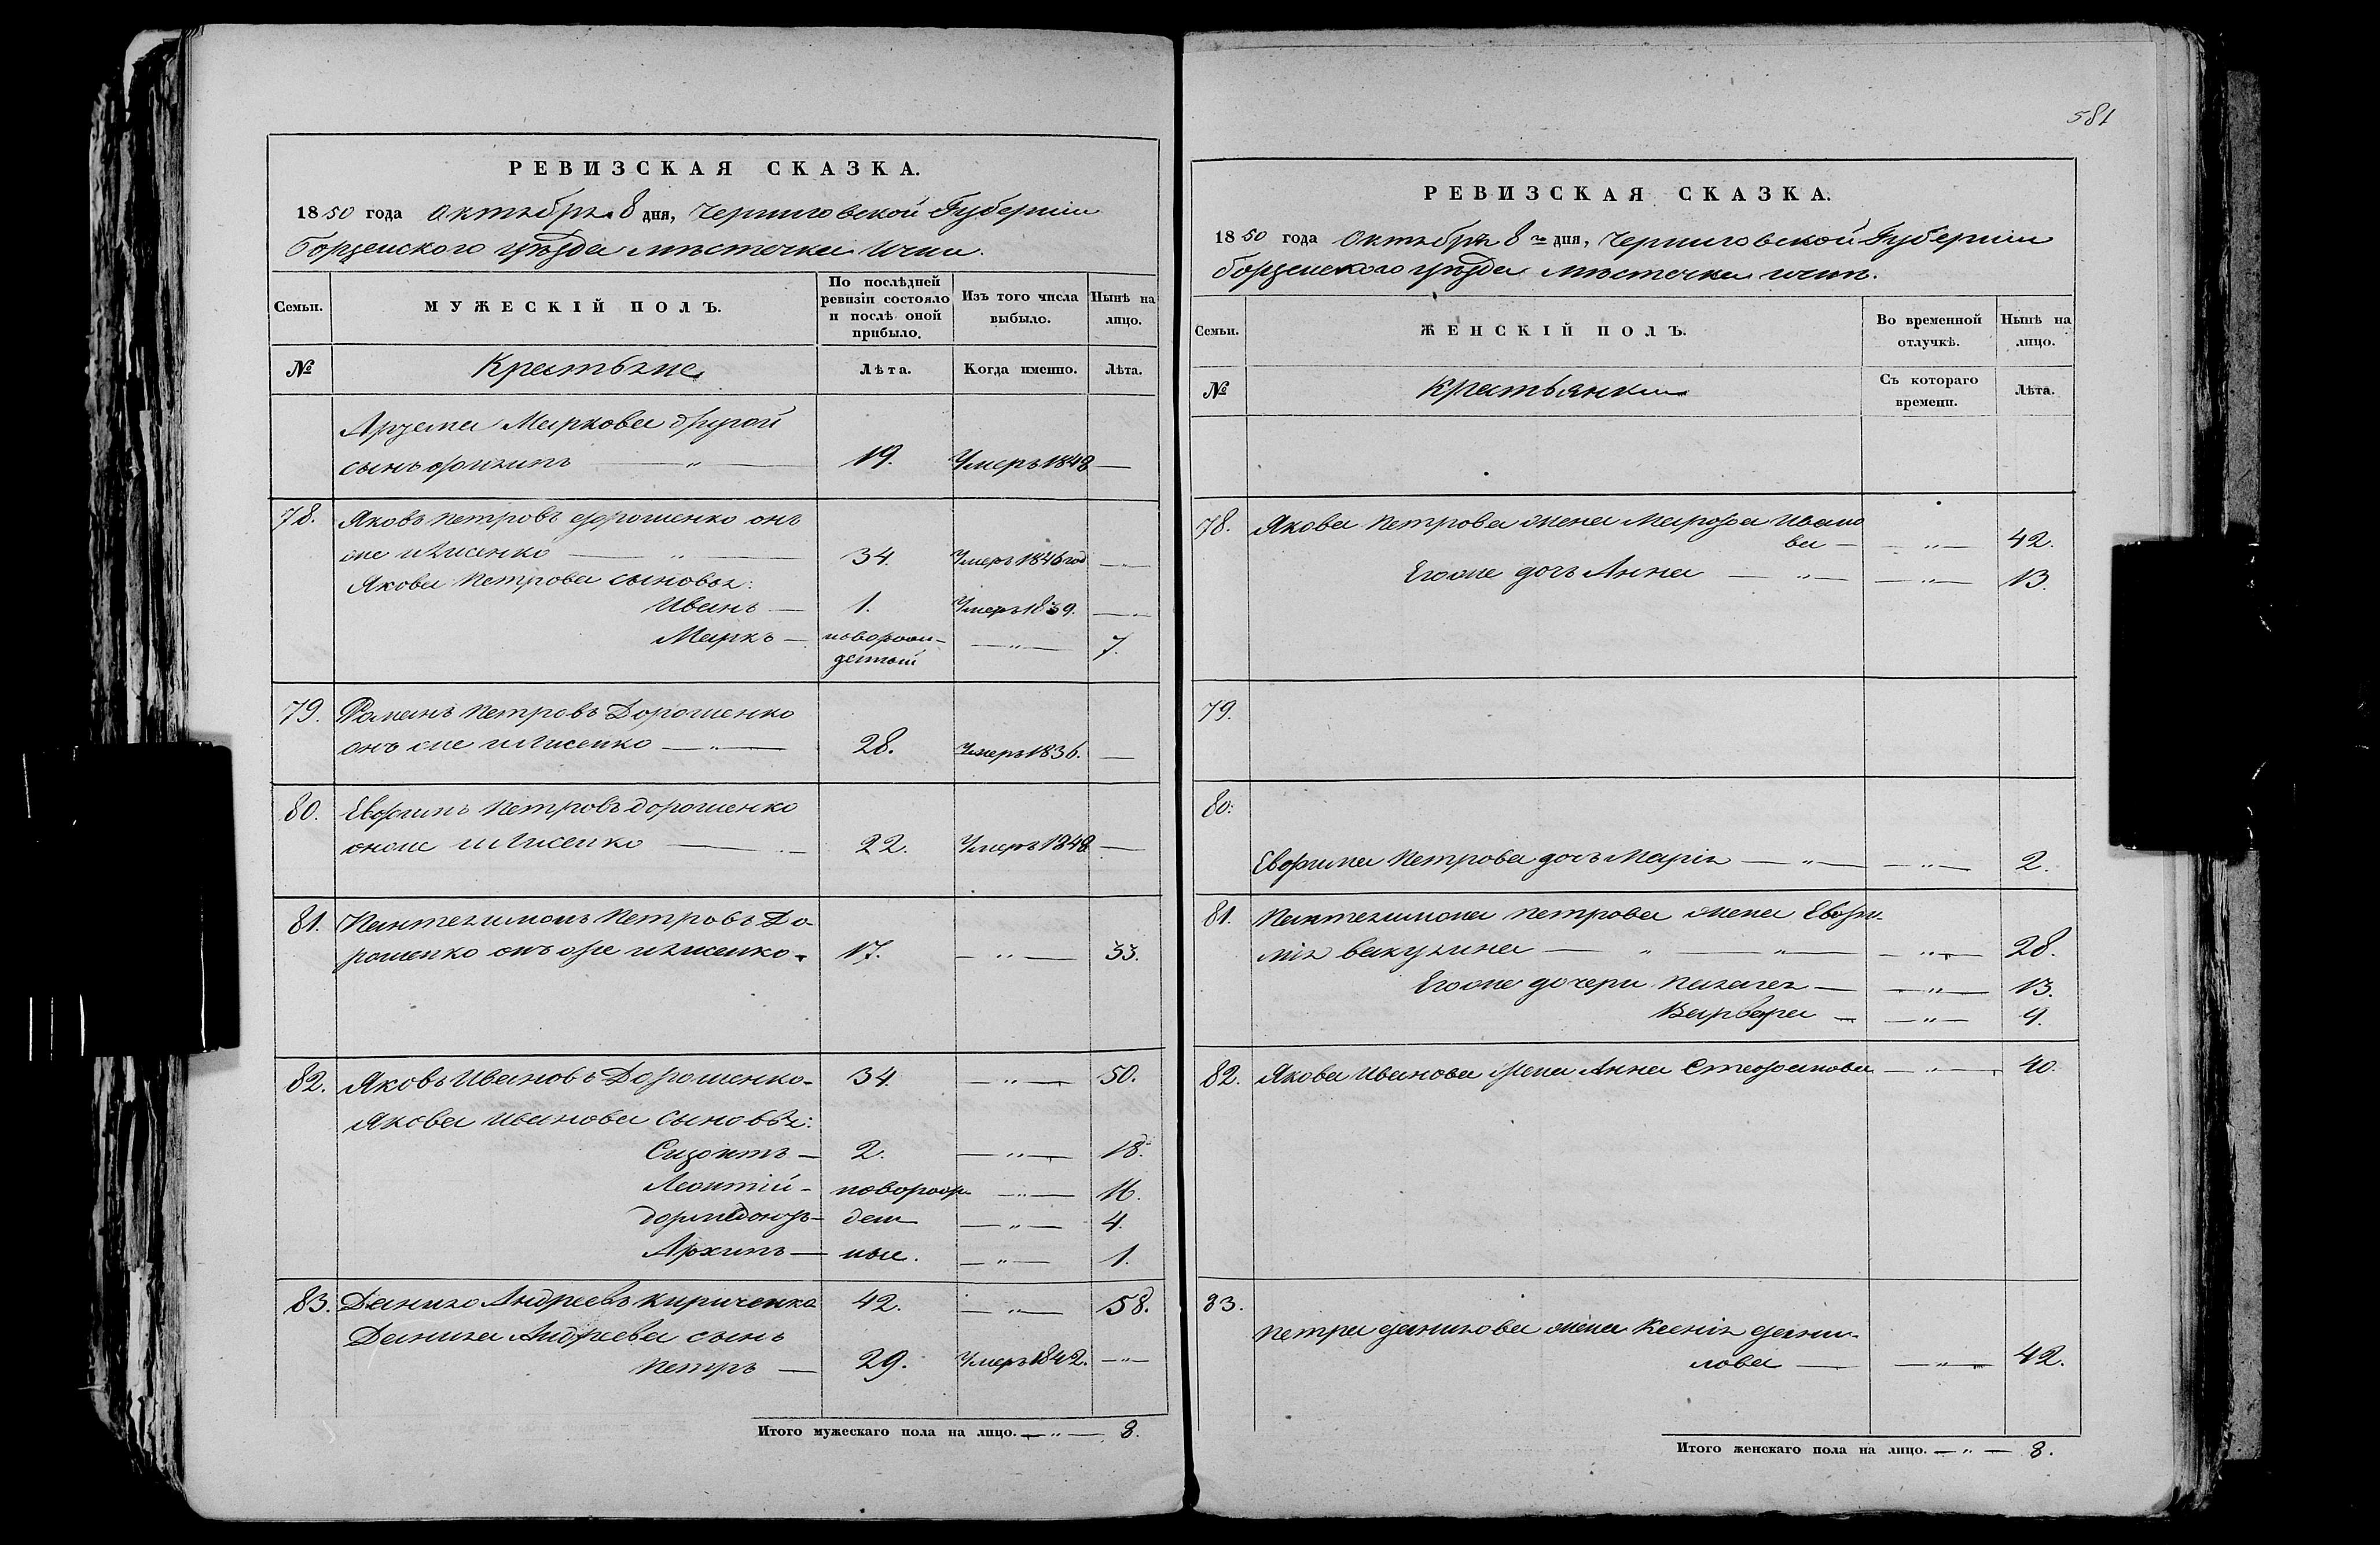 РЕВИЗСКАЯ СКАЗКА.
1850 года Октября 8 дня, Черниговской Губернии
Борзенского уѣзда мѣстечка Ични.
Семьи.
МУЖЕСКІЙ ПОЛЪ.
По послѣдней ревизіи состояло и послѣ оной прибыло.
Изъ того числа выбыло.
Нынѣ на лицо.
№
Крестьяне
Лѣта.
Когда именно.
Лѣта.
Маркова другой
сынъ — „ — 19. Умеръ 1848 —
78. Яковъ Петровъ Дорошенко онъ
же — „ — 34. Умеръ 1846 год — „
Якова Петрова сыновья:
Иванъ — 1. Умеръ 1839. — „
Маркъ — новорож-
денный — „ — 7.
79. Романъ Петровъ Дорошенко
онъ же — „ — 28. Умеръ 1836. —
80. Евфимъ Петровъ Дорошенко
онже — 22. Умеръ 1848 —
81. Пантелимонъ Петровъ До-
рошенко онъ же 17. — „ — 33.
82. Яковъ Ивановъ Дорошенко- 34. — „ — 50.
Якова Иванова сыновья:
Сизонтъ — 2. — „ — 18.
Леонтій - новорож — „ — 16.
ден — „ — 4.
Архипъ — ные. — „ — 1.
83. Данило Андреевъ Кириченко 42. — „ — 58.
Данила Андреева сынъ
Петръ — 29. Умеръ 1842. — „ —
Итого мужескаго пола на лицо. — „ — 8.
581
РЕВИЗСКАЯ СКАЗКА.
1850 года Октября 8го дня, Черниговской Губернии
Борзенского уѣзда мѣстечка Ични.
Семьи.
ЖЕНСКІЙ ПОЛЪ.
Во временной отлучкѣ.
Нынѣ на лицо.
№
Крестьянки
Съ котораго времени.
Лѣта.
78. Якова Петрова жена Марфа Ивано
ва — — „ — 42.
Егоже дочь Анна — „ — — „ — 13.
79.
80.
Евфима Петрова дочь Марія — „ — — „ — 2.
81. Пантелимона Петрова жена Евфи-
мія Вакулина — „ — „ — — „ — 28.
Егоже дочери Палагея — — „ — 13.
Варвара — — „ — 9.
82. Якова Иванова жена Анна Стефанова — „ — 40.
83.
Петра Данилова жена Ксенія Дани-
лова — — „ — 42.
Итого женскаго пола на лицо. — „ — 8.